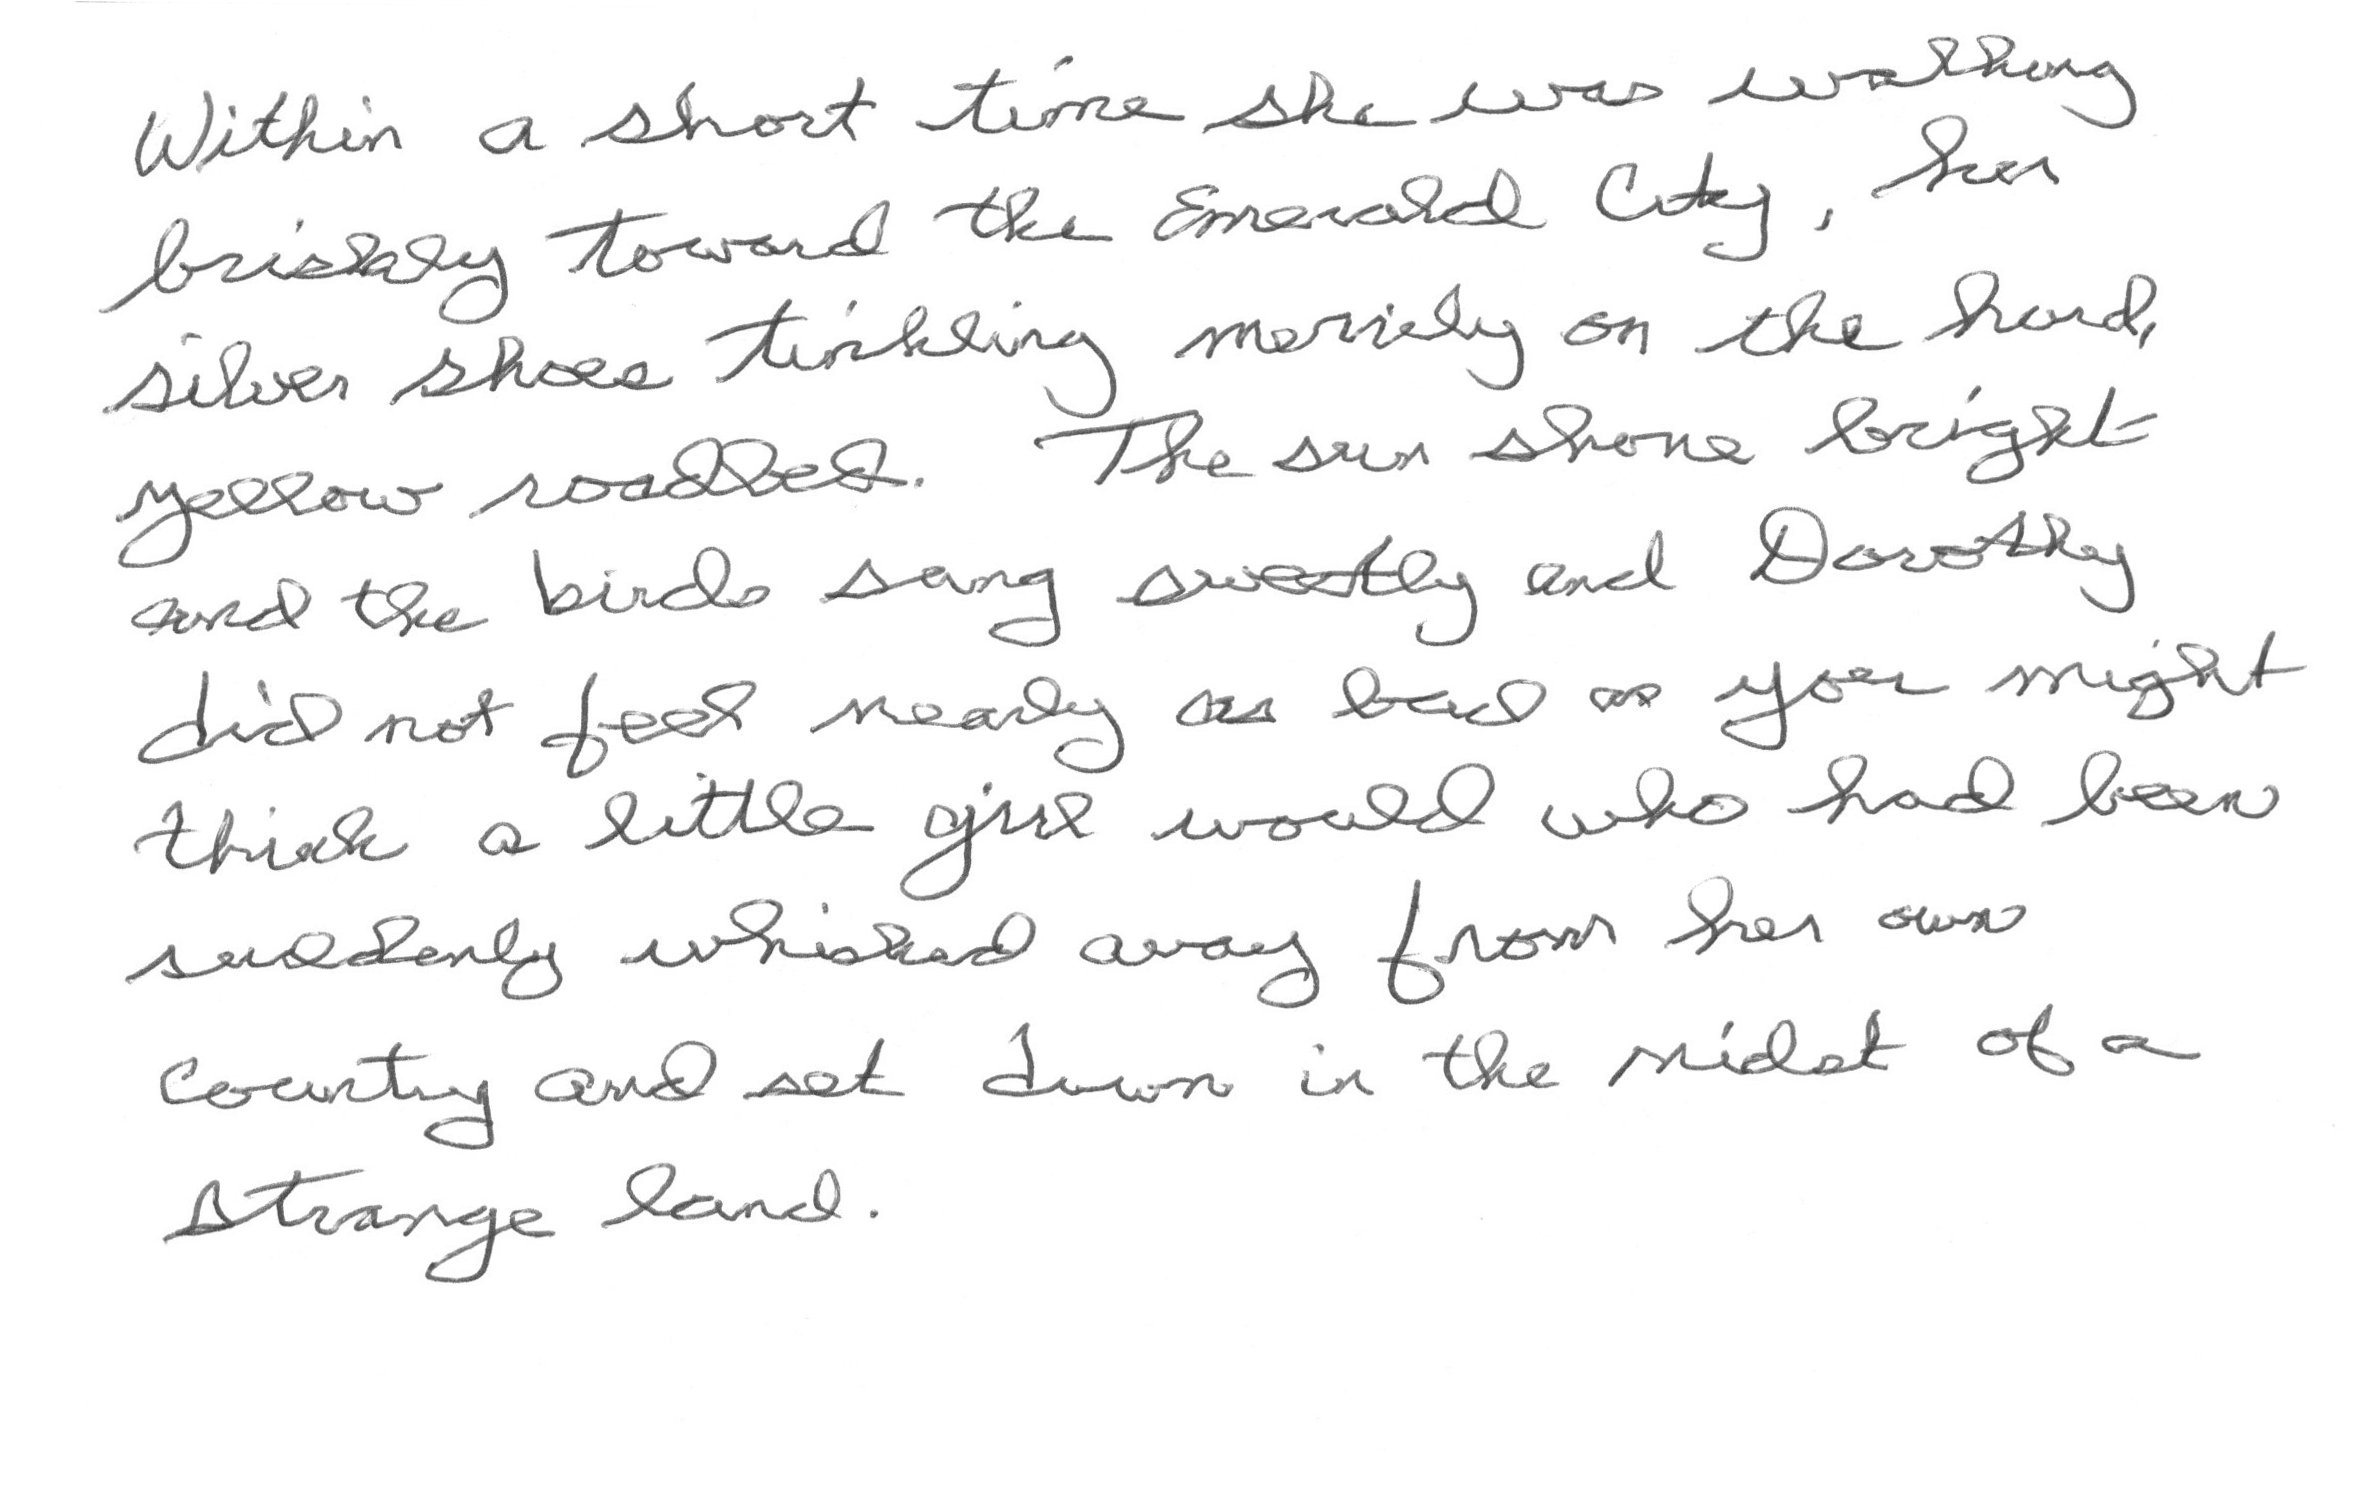 Within a short time she was walking
briskly toward the Emerald City, her
silver shoes tinkling merrily on the hard,
yellow roadbed. The sun shone bright
and the birds sang sweetly and Dorothy
did not feel nearly as bad as you might
think a little girl would who had been
suddenly whisked away from her own
country and set down in the midst of a
strange land.